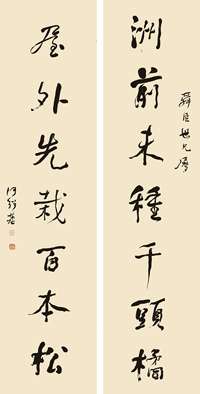 舜臣世兄属
洲前未種千頭橘
屋外先栽百本松
何紹基